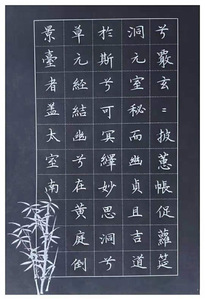 兮覈玄〻披蕙帳促蘿筵
洞元室秘而幽貞且吉道
於斯兮可冥繹妙思洞兮
草元經結幽兮在黄庭倒
景臺者盖太室南